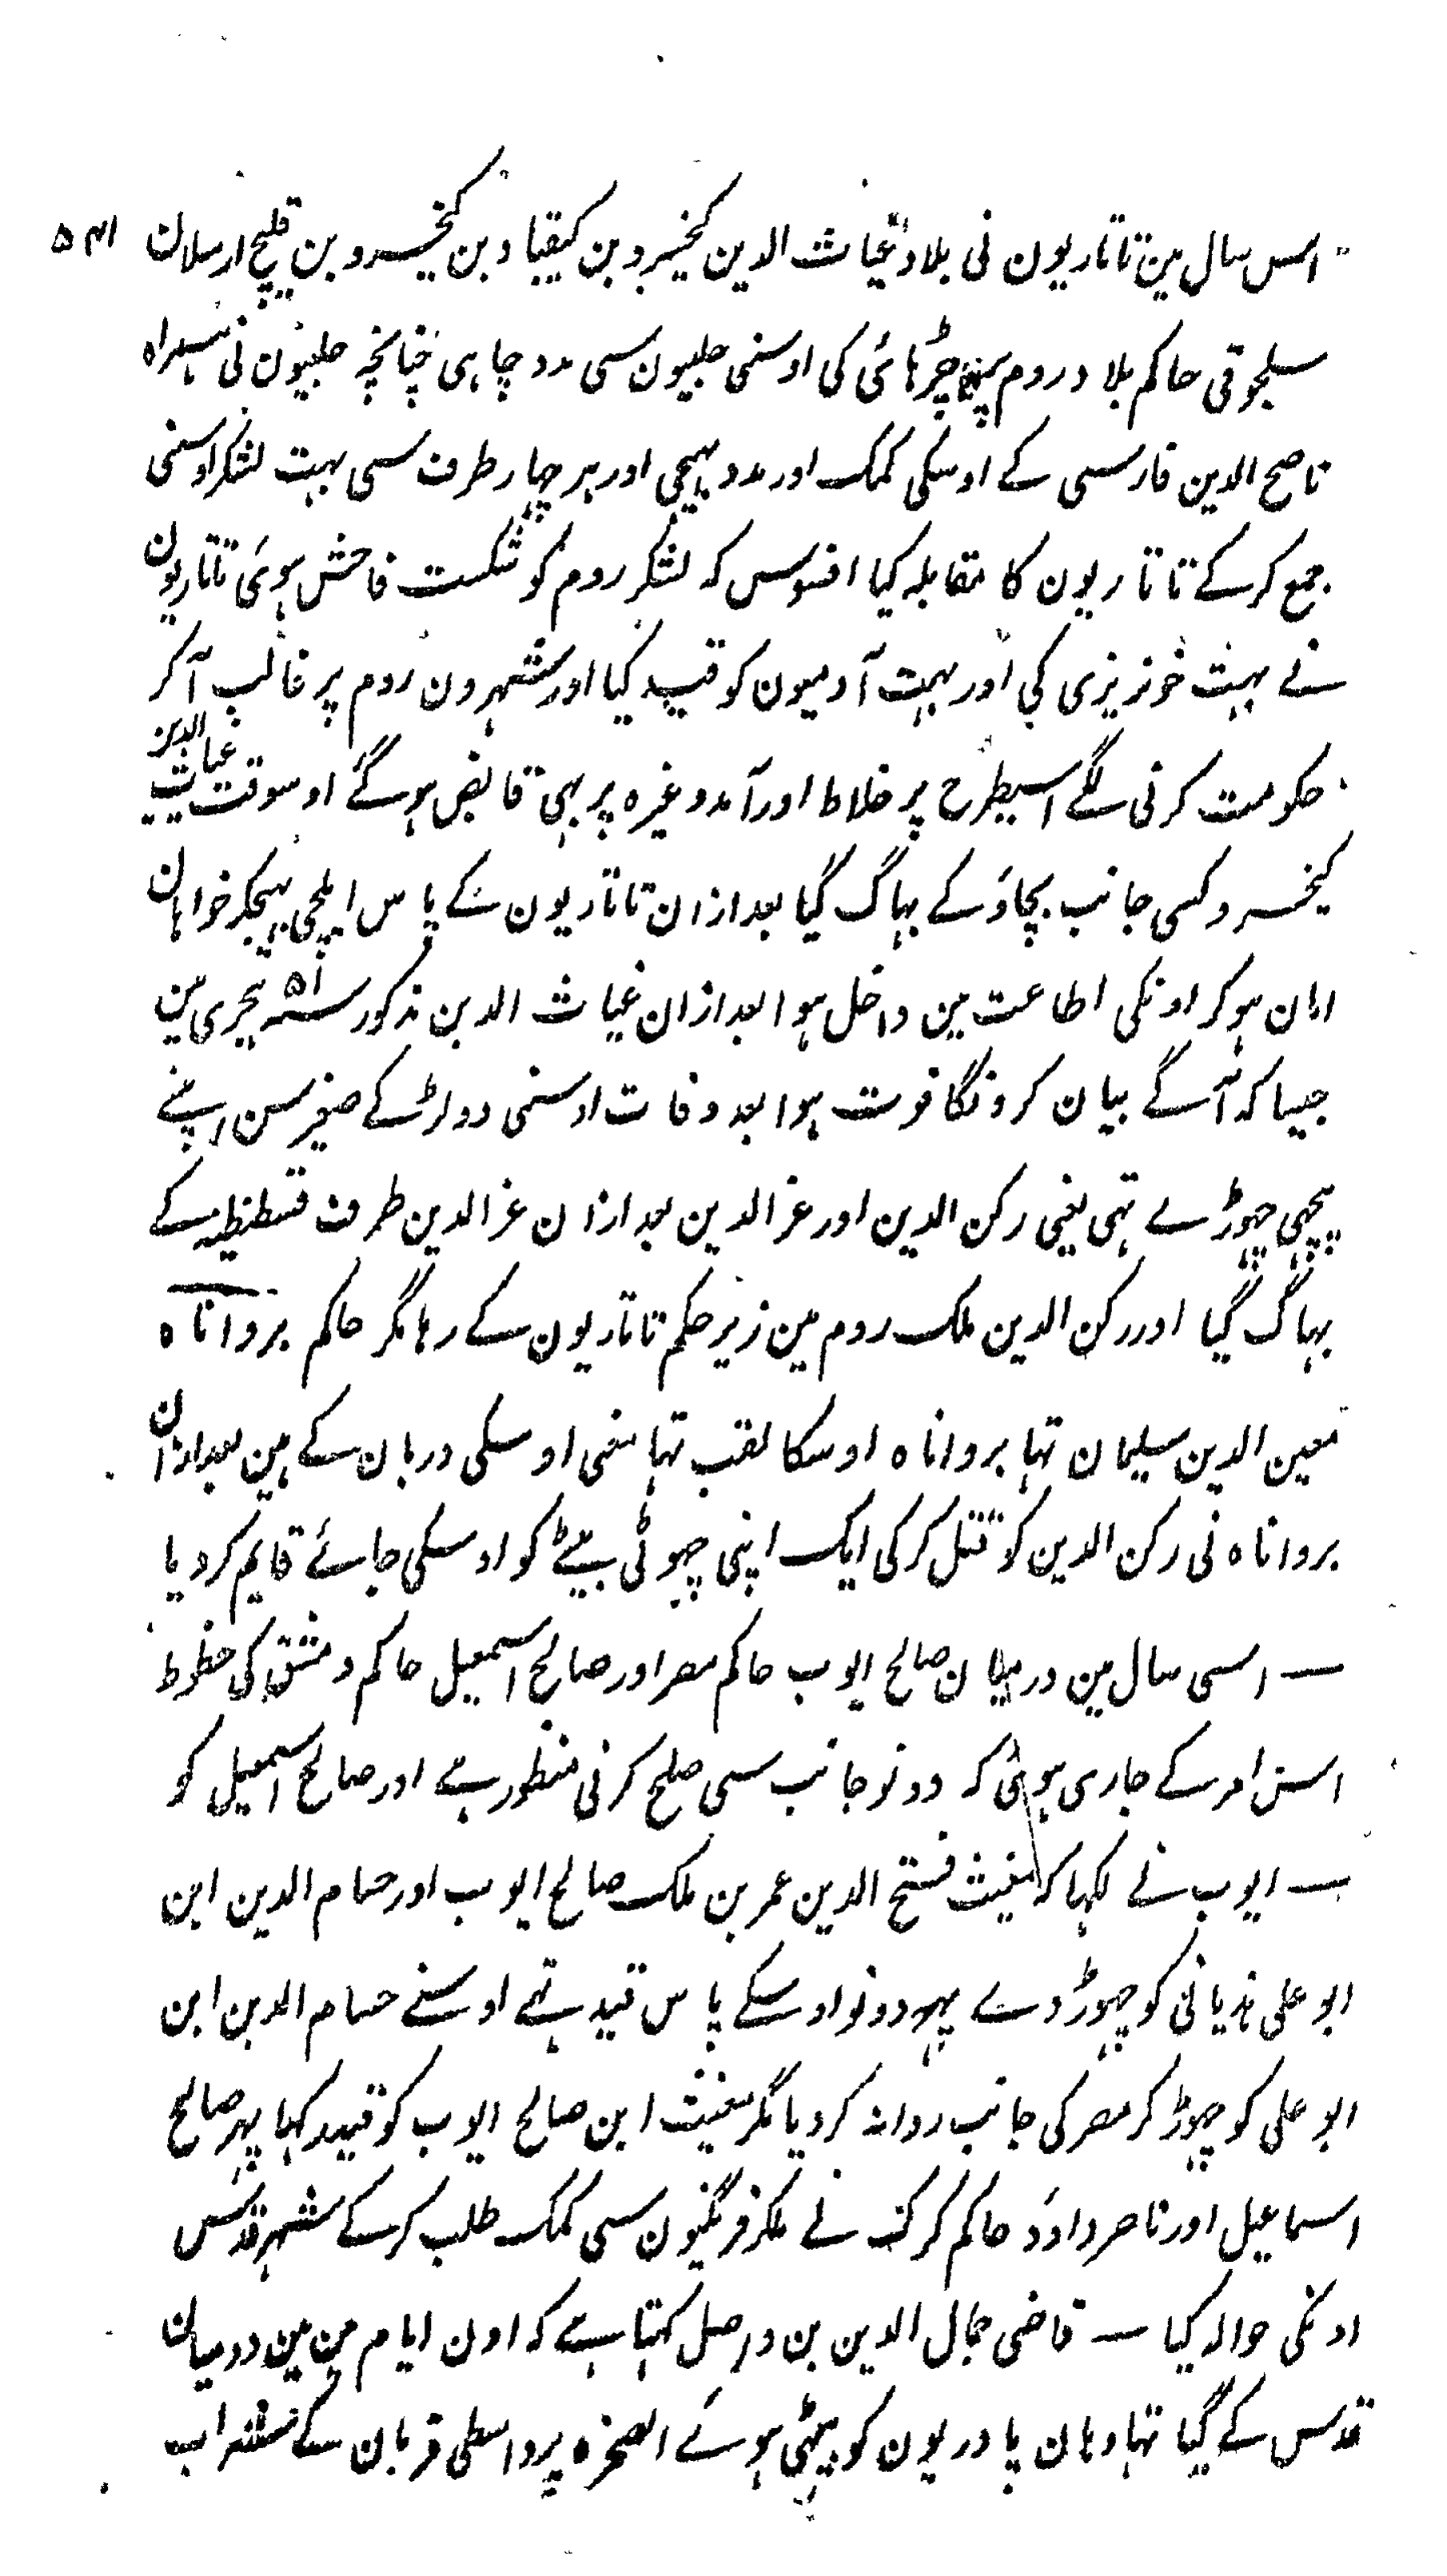 اس سال مین تاتاریون نی بلاد غیاث الدین کیخسرو بن کیقباد بن کیخسرو بن قلیج ارسلان
سلجوقی حاکم بلاد روم پر چڑہائی کی اوسنی حلبیون سی مدد چاہی چنانچہ حلبیون نی ہمراہ
ناصح الدین فارسی کے اوسکی کمک اور مدد بہیجی اور ہر چہار طرف سی بہت لشکر اوسنی
جمع کرکے تاتاریون کا مقابلہ کیا افسوس کہ لشکر روم کو شکست فاحش ہوئی تاتاریون
نے بہت خونریزی کی اور بہت آدمیون کو قید کیا اور شہرون روم پر غالب آکر
حکومت کرنی لگے اسیطرح پر خلاط اور آمد وغیرہ پر بہی قابض ہوگئے اوسوقت غیاث الدین
کیخسرو کسی جانب بچاؤ کے بہاگ گیا بعد ازان تاتاریون کے پاس ایلچی بہیجکر خواہان
امان ہوکر اونکی اطاعت مین داخل ہوا بعد ازان غیاث الدین مذکور سنہ ہجری مین
جیسا کہ آگے بیان کرونگا فوت ہوا بعد وفات اوسنی دو لڑکے صغیر سن اپنے
پیچہی چہوڑے تہی یعنی رکن الدین اور عز الدین بعد ازان عز الدین طرف قسطنطیہ کے
بہاگ گیا اور رکن الدین ملک روم مین زیر حکم تاتاریون کے رہا مگر حاکم بروانا ہ
معین الدین سلیمان تہا بروانا ہ اوسکا لقب تہا معنی اوسکی دربان کے ہین بعد ازان
بروانا ہ نی رکن الدین کو قتل کرکی ایک اپنی چہوٹی بیٹے کو اوسکی جائے قایم کردیا
— اسی سال مین درمیان صالح ایوب حاکم مصر اور صالح اسمعیل حاکم دمشق کی خطوط
اس امر کے جاری ہوئی کہ دونو جانب سی صلح کرنی منظور ہے اور صالح اسمعیل کو
— ایوب نے لکہا کہ مغیث فتح الدین عمر بن ملک صالح ایوب اور حسام الدین ابن
ابو علی ہذیانی کو چہوڑ دے یہہ دونو اوسکے پاس قید تہے اوسنے حسام الدین ابن
ابو علی کو چہوڑ کر مصر کی جانب روانہ کردیا مگر مغیث ابن صالح ایوب کو قید رکہا پہر صالح
اسماعیل اور ناصر داؤد حاکم کرک نے ملکر فرنگیون سی کمک طلب کرکے شہر قدس
اونکی حوالہ کیا — قاضی جمال الدین بن واصل کہتا ہے کہ اون ایام مین مین درمیان
قدس کے گیا تہا وہان پادریون کو بیٹہی ہوئے الصخرہ پر واسطی قربان کے شراب